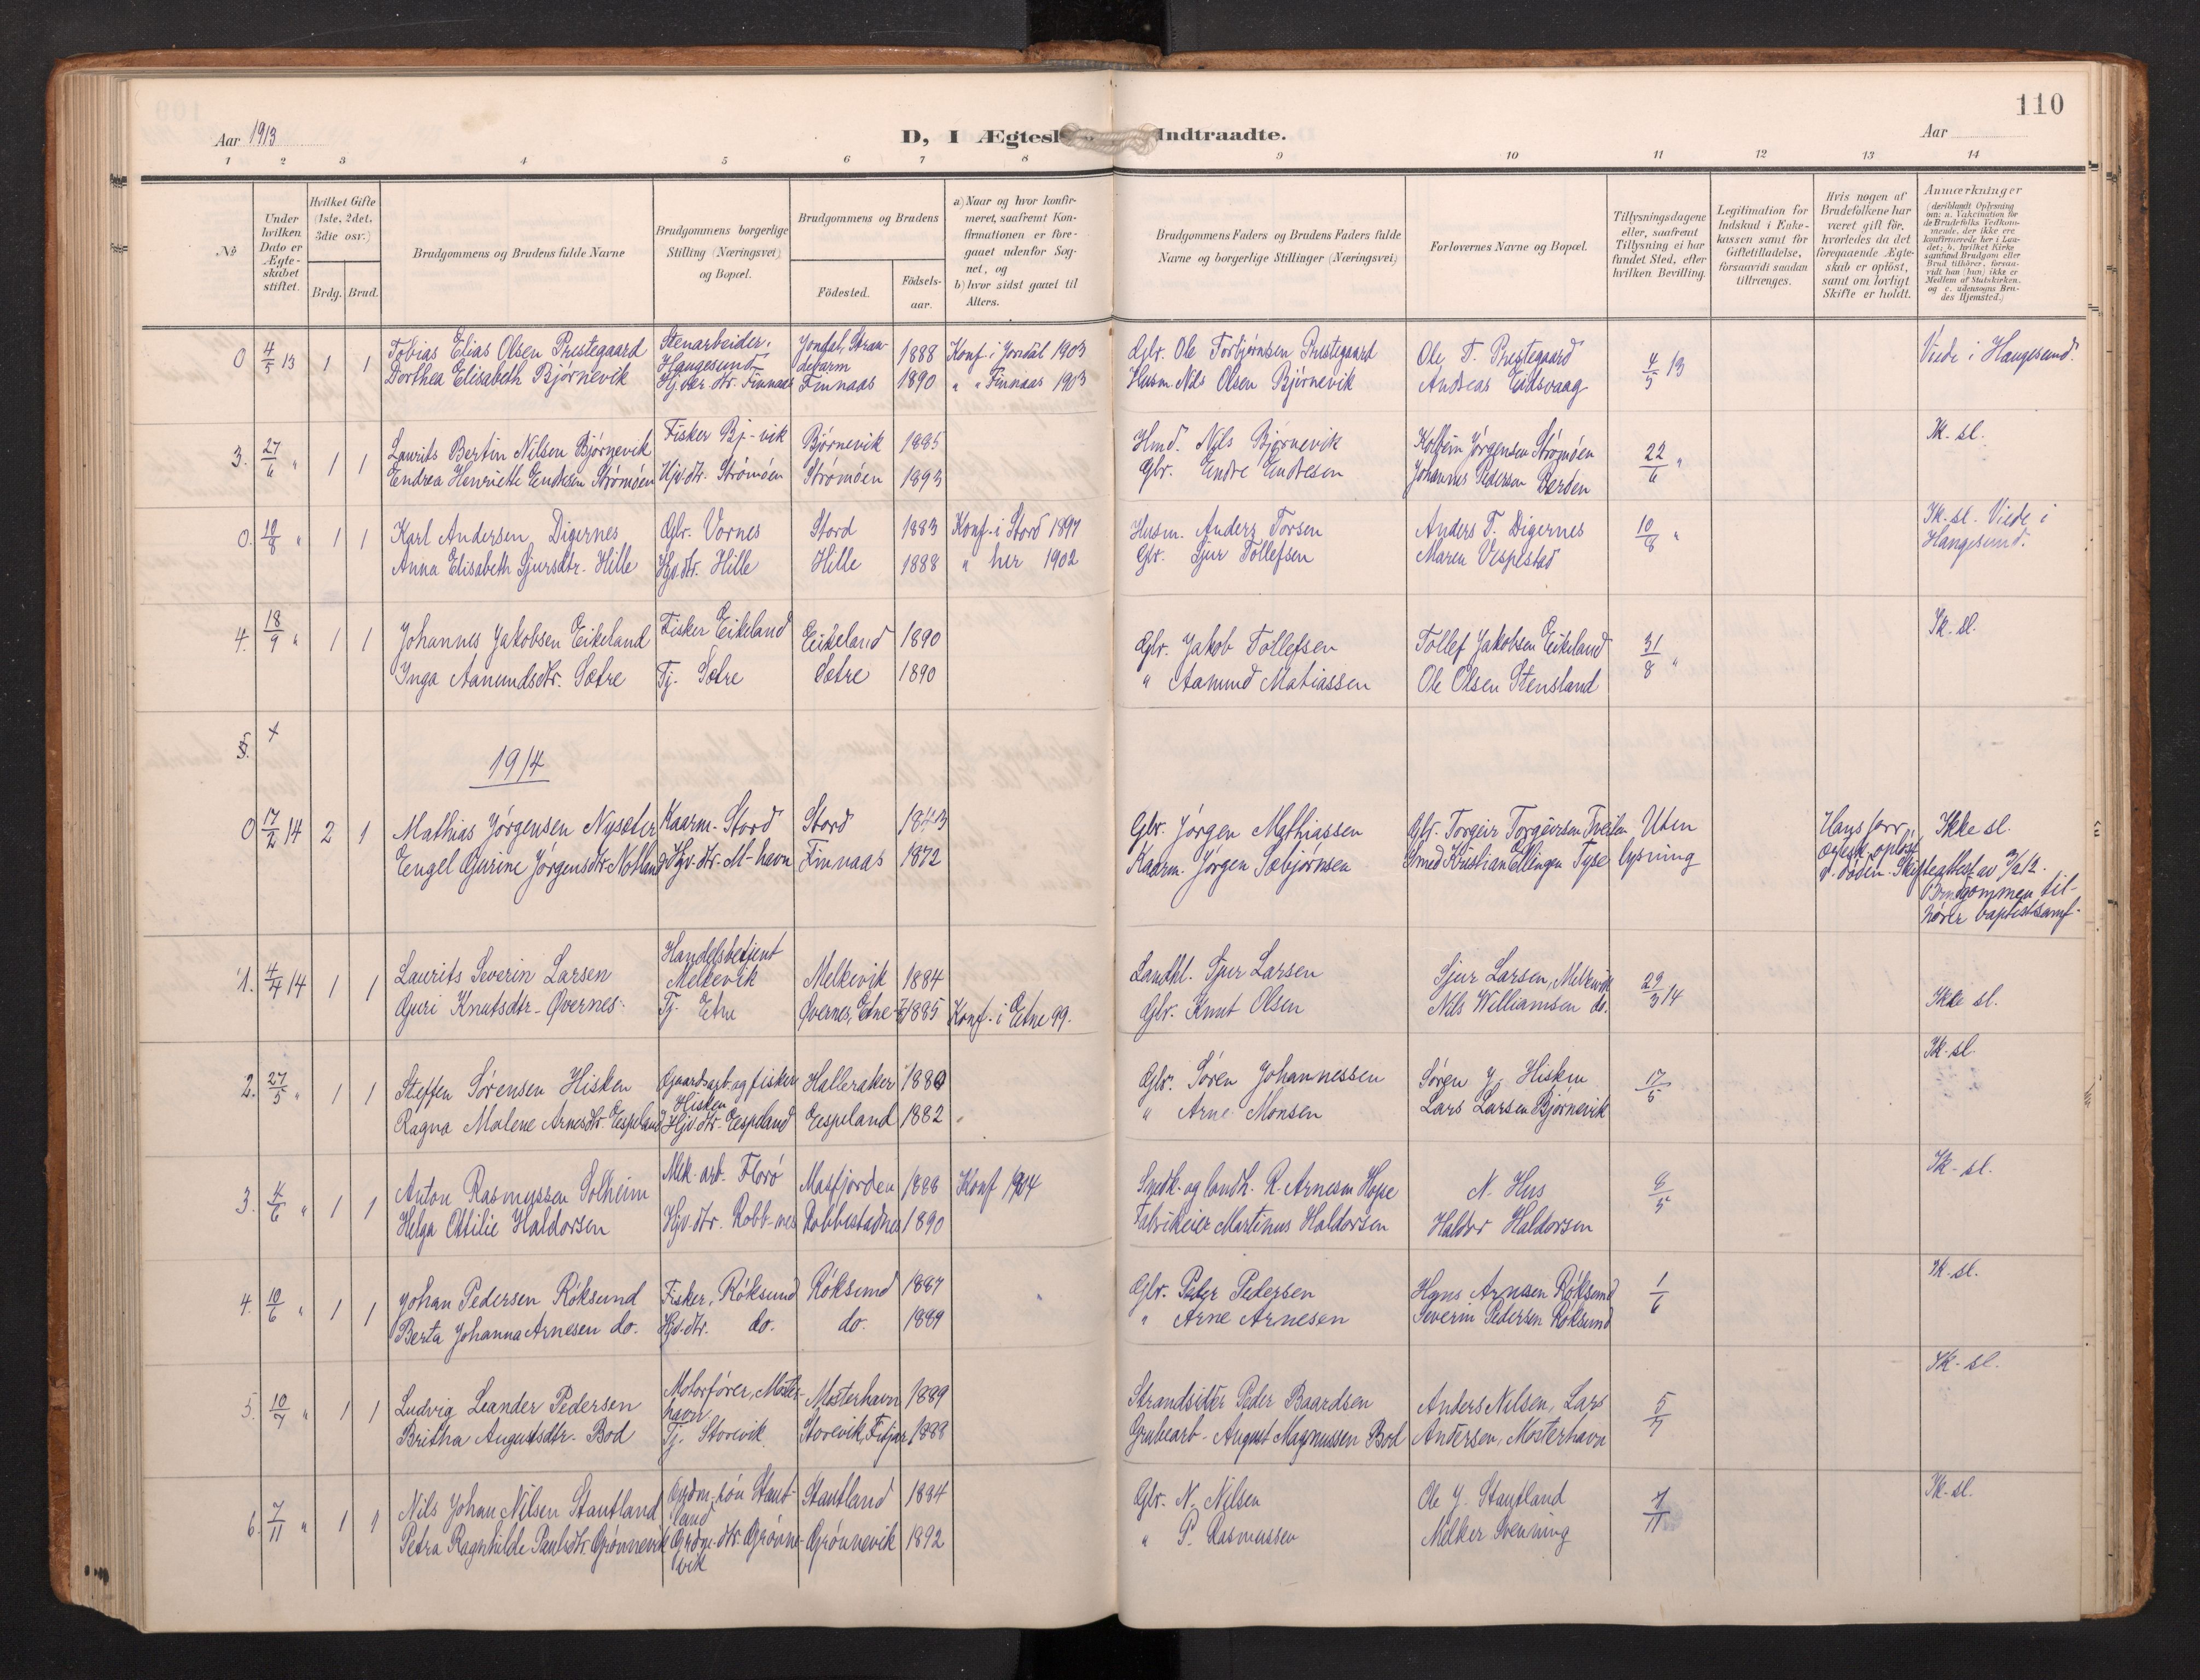 110
Aar 1913
D, I Ægtesk Indtraadte.
Aar
1 2 3 4 5 6 7 8 9 10 11 12 13 14
No
Under hvilken Dato er Ægteskabet stiftet.
Hvilket Gifte (1ste, 2det, 3die osv.)
Brdg. Brud.
Brudgommens og Brudens fulde Navne
Brudgommens borgerlige Stilling (Næringsvei) og Bopæl.
Brudgommens og Brudens
Födested.
Födselsaar.
a) Naar og hvor konfirmeret, saafremt Konfirmationen er foregaaet udenfor Sognet, og
b) hvor sidst gaaet til Alters.
Brudgommens Faders og Brudens Faders fulde Navne og borgerlige Stillinger (Næringsvei)
Forlovernes Navne og Bopæl.
Tillysningsdagene eller, saafremt Tillysning ei har fundet Sted, efter hvilken Bevilling.
Legitimation for Indskud i Enkekassen samt for Giftetilladelse, forsaavidt saadan tiltrænges.
Hvis nogen af Brudefolkene har været gift för, hvorledes da det foregaaende Ægteskab er oplöst, samt om lovligt Skifte er holdt.
Anmærkninger (deriblandt Oplysning om: a. Vakcination för de Brudefolks Vedkommende, der ikke ere konfirmerede her i Landet; b. hvilket Kirkesamfund Brudgom eller Brud tilhörer, forsaavidt han (hun) ikke er Medlem af Statskirken, og c. udensogns Brudes Hjemsted.)
0 4/5 13 1 1 Tobias Elias Olsen Prestegaard Stenarbeider, Haugesund Jondal, Strandebarm 1888 Konf. i Jondal 1903 Gbr. Ole Torbjørnsen Prestegaard Ole T. Prestegaard 4/5 13 Viede i Haugesund.
Dorthea Elisabeth Bjørnevik Hj.vær. dtr. Finnaas Finnaas 1890 " " Finnaas 1903 Husm. Nils Olsen Bjørnevik Andreas Eidsvaag
3. 27/6 " 1 1 Laurits Bertin Nilsen Bjørnevik Fisker Bj-vik Bjørnevik 1885 Hmd. Nils Bjørnevik Kolbein Jørgensen Strømøen 22/6 " Ik. sl.
Endrea Henriette Endresen Strømøen Hjv. dtr. Strømøen Strømøen 1893 Gbr. Endre Endresen Johannes Pedersen
0. 10/8 " 1 1 Karl Andersen Digernes Gbr. Vornes Stord 1883 Konf. i Stord 1897 Husm. Anders Torsen Anders T. Digernes 10/8 " Ik. sl. Viede i Haugesund.
Anna Elisabeth Sjursdtr. Hille Hjv. dtr. Hille Hille 1888 " her 1902 Gbr. Sjur Tollefsen Maren Vespestad
4. 18/9 " 1 1 Johannes Jakobsen Eikeland Fisker Eikeland Eikeland 1890 Gbr. Jakob Tollefsen Tollef Jakobsen Eikeland 31/8 " Ik. sl.
Inga Aamundsdtr. Sætre Tj. Sætre Sætre 1890 " Aamund Matiassen Ole Olsen Stensland
5. +
1914
0 17/2 14 2 1 Mathias Jørgensen Nysæter Kaarm. Stord Stord 1843 Gbr. Jørgen Mathiassen Gbr. Torgeir Torgeirsen Uten Hans forr. Ikke sl.
Engel Gurine Jørgensdtr. Notland Hjv. dtr. M-havn Finnaas 1872 Kaarm. Jørgen Sæbjørnsen Smed Kristian Ellingsen Tyse lysning ægtesk. opløst v. døden. Skifteattest av
Brudgommen tilhører baptistsamf.
1. 4/4 14 1 1 Laurits Severin Larsen Handelsbetjent Melkevik Melkevik 1884 Landhl. Sjur Larsen Sjur Larsen, Melkevik 29/3 14
Guri Knutsdtr. Øvernes. Tj. Etne Øvernes, Etne 1885 Konf. i Etne 99. Gbr. Knut Olsen Nils Williamsen do. Ikke sl.
2. 27/5 " 1 1 Steffen Sørensen Hisken Gaardsarb. og fisker Hisken Halleraker 1880 Gbr. Søren Johannessen Søren J. Hisken 17/5 Ik. sl.
Ragna Malene Arnesdtr. Espeland Hjv. dtr. Espeland Espeland 1882 " Arne Monsen Lars Larsen Bjørnevik
3. 4/6 " 1 1 Anton Rasmussen Solheim Mek. arb. Florø Masfjorden 1888 Konf 1904 Snedk. og landh. R. Arnesen Hope N. Hus 8/5 Ik. sl.
Helga Ottilie Haldorsen Hjv. dtr. Robb-nes Robbestadnes 1890 Fabrikeier Martinus Haldorsen Haldor Haldorsen
4. 10/6 " 1 1 Johan Pedersen Røksund Fisker, Røksund Røksund 1887 Gbr. Peder Pedersen Hans Arnesen Røksund 1/6 Ik. sl.
Berta Johanna Arnesen do. Hjv. dtr. do. do. 1889 " Arne Arnesen Severin Pedersen Røksund
5. 10/7 " 1 1 Ludvig Leander Pedersen Motorfører, Mosterhavn Mosterhavn 1889 Strandsitter Peder Baardsen Anders Nilsen, Lars 5/7 Ik. sl.
Britha Augustsdtr. Bod Tj. Storevik Storevik, Fitjar 1888 Grubearb. August Magnussen Bod Andersen, Mosterhavn
6. 7/11 " 1 1 Nils Johan Nilsen Stautland Grdm. søn Stautland Stautland 1884 Gbr. N. Nilsen Ole J. Stautland 1/11 Ik. sl.
Petra Ragnhilde Paulsdtr. Grønnevik Grdm. dtr. Grønnevik Grønnevik 1892 " P. Rasmussen Melker Svenning